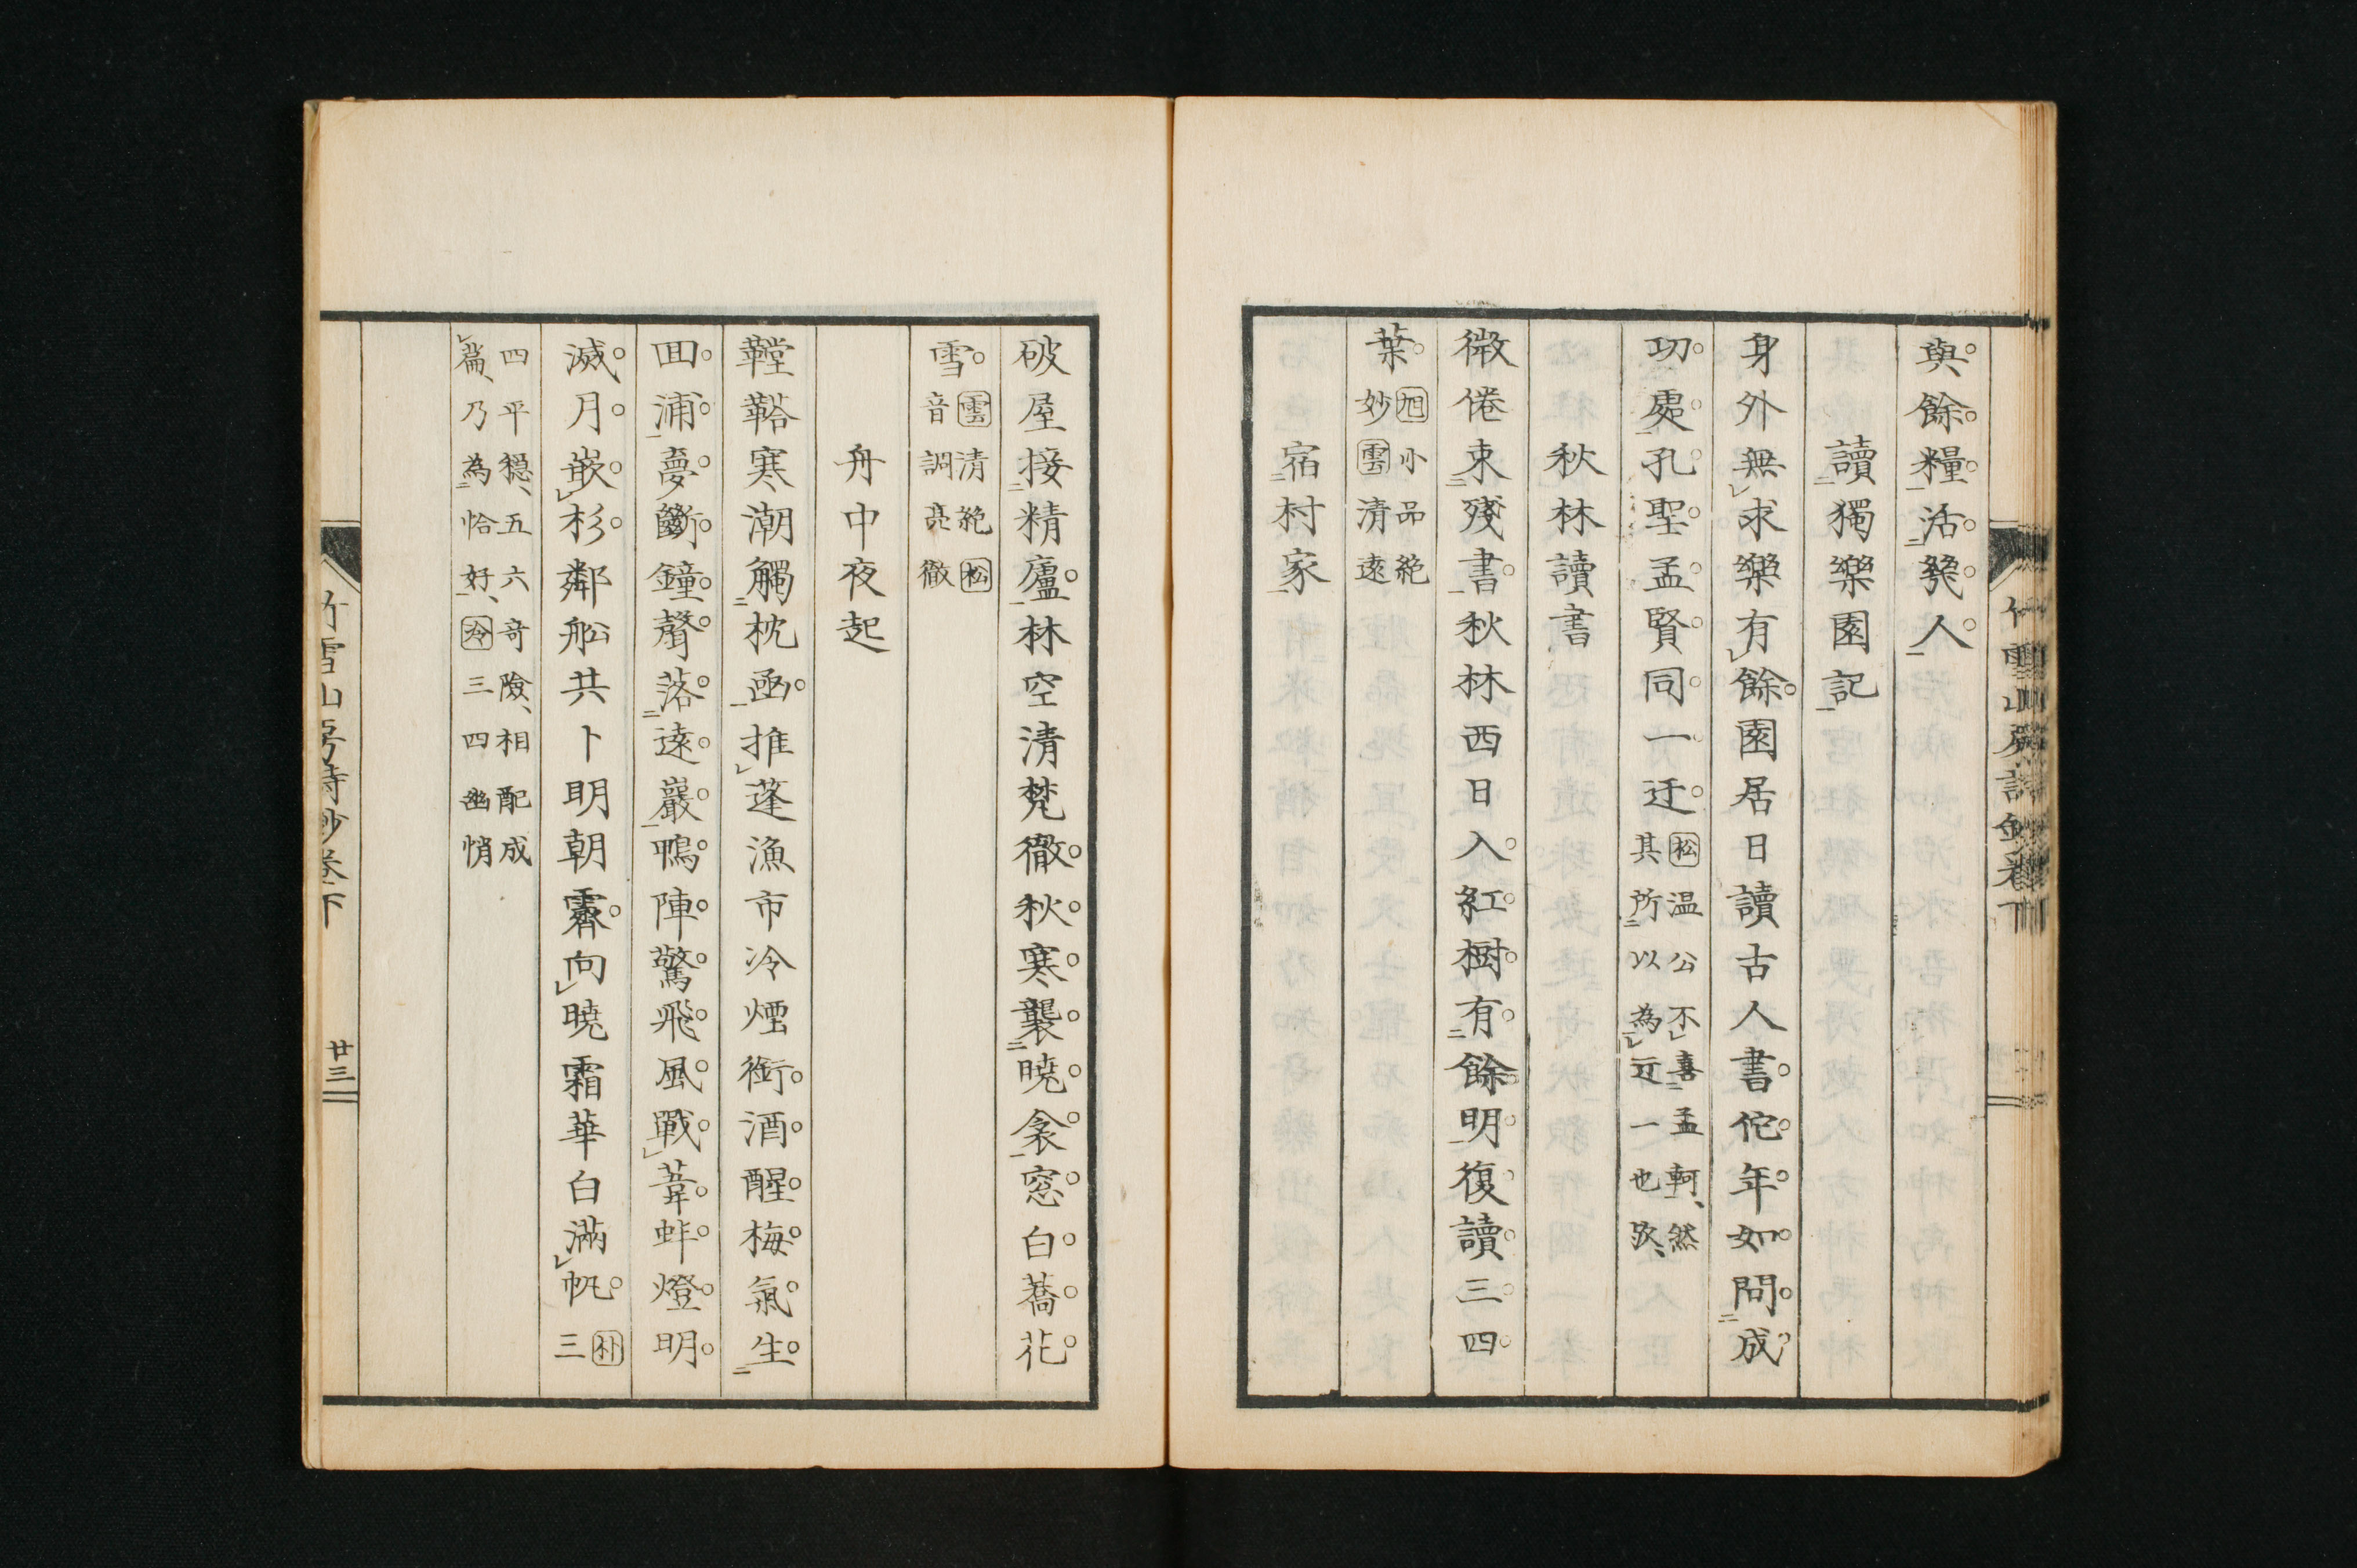 與餘糧活幾人
讀獨樂園記
身外無求樂有餘園居日讀古人書佗年如問成
功處孔聖孟賢同一迂 松 温公不喜孟軻然
其所以為迂一也歟
秋林讀書
微倦束殘書秋林西日入紅樹有餘明復讀三四
葉 旭 小品絶
妙 雲 清遠
宿村家
破屋接精廬林空清梵徹秋寒襲曉衾窓白蕎花
雪 雲 清絶 松
音調亮徹
舟中夜起
鞺鞳寒潮觸枕函推蓬漁市冷煙銜酒醒梅氣生
回浦夢斷鐘聲落遠巖鴨陣驚飛風戰葦蚌燈明
滅月嵌杉鄰船共卜明朝霽向曉霜華白滿帆 朴
三
四平穏五六奇險相配成
篇乃為恰好 冷 三四幽悄
竹雪山房詩鈔卷下
廿三